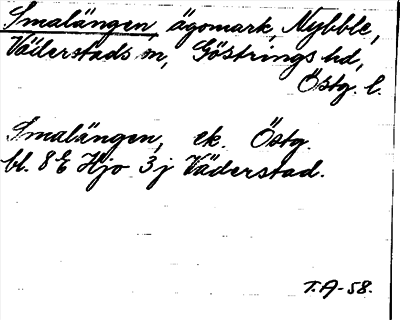 Smalängen, ägomark, Nybble,
Väderstads sn, Göstrings hd,
Östg. l.
Smalängen, ek. Östg.
bl. 8E Hjo 3j Väderstad.
T.A-58.